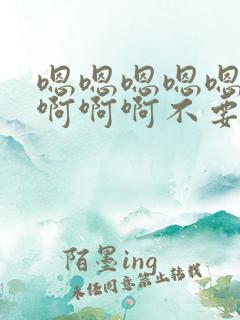 嗯嗯嗯嗯嗯
啊啊啊不要
陌墨ing
未经同意禁止转载